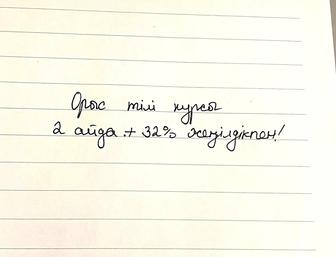 Орыс тілі курсы
2 айда + 32% жеңілдікпен!